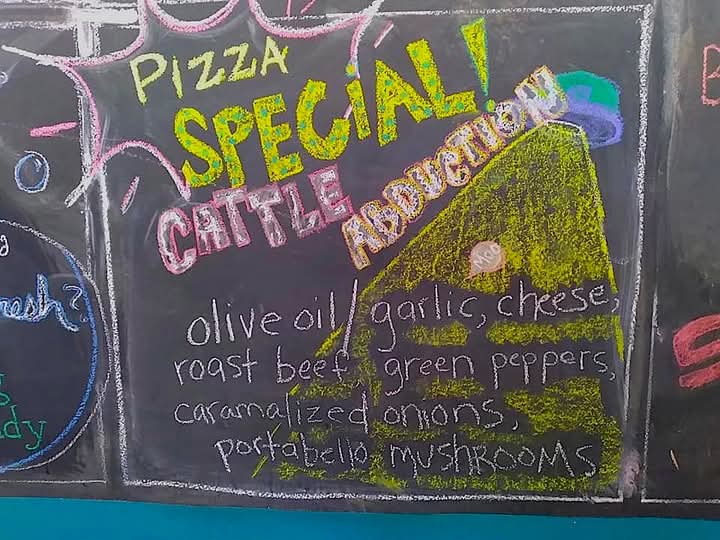 PIZZA
SPECIAL!
CATTLE ABDUCTION
Moo
olive oil/garlic, cheese,
roast beef, green peppers,
caramalized onions,
portabello MUSHROOMS